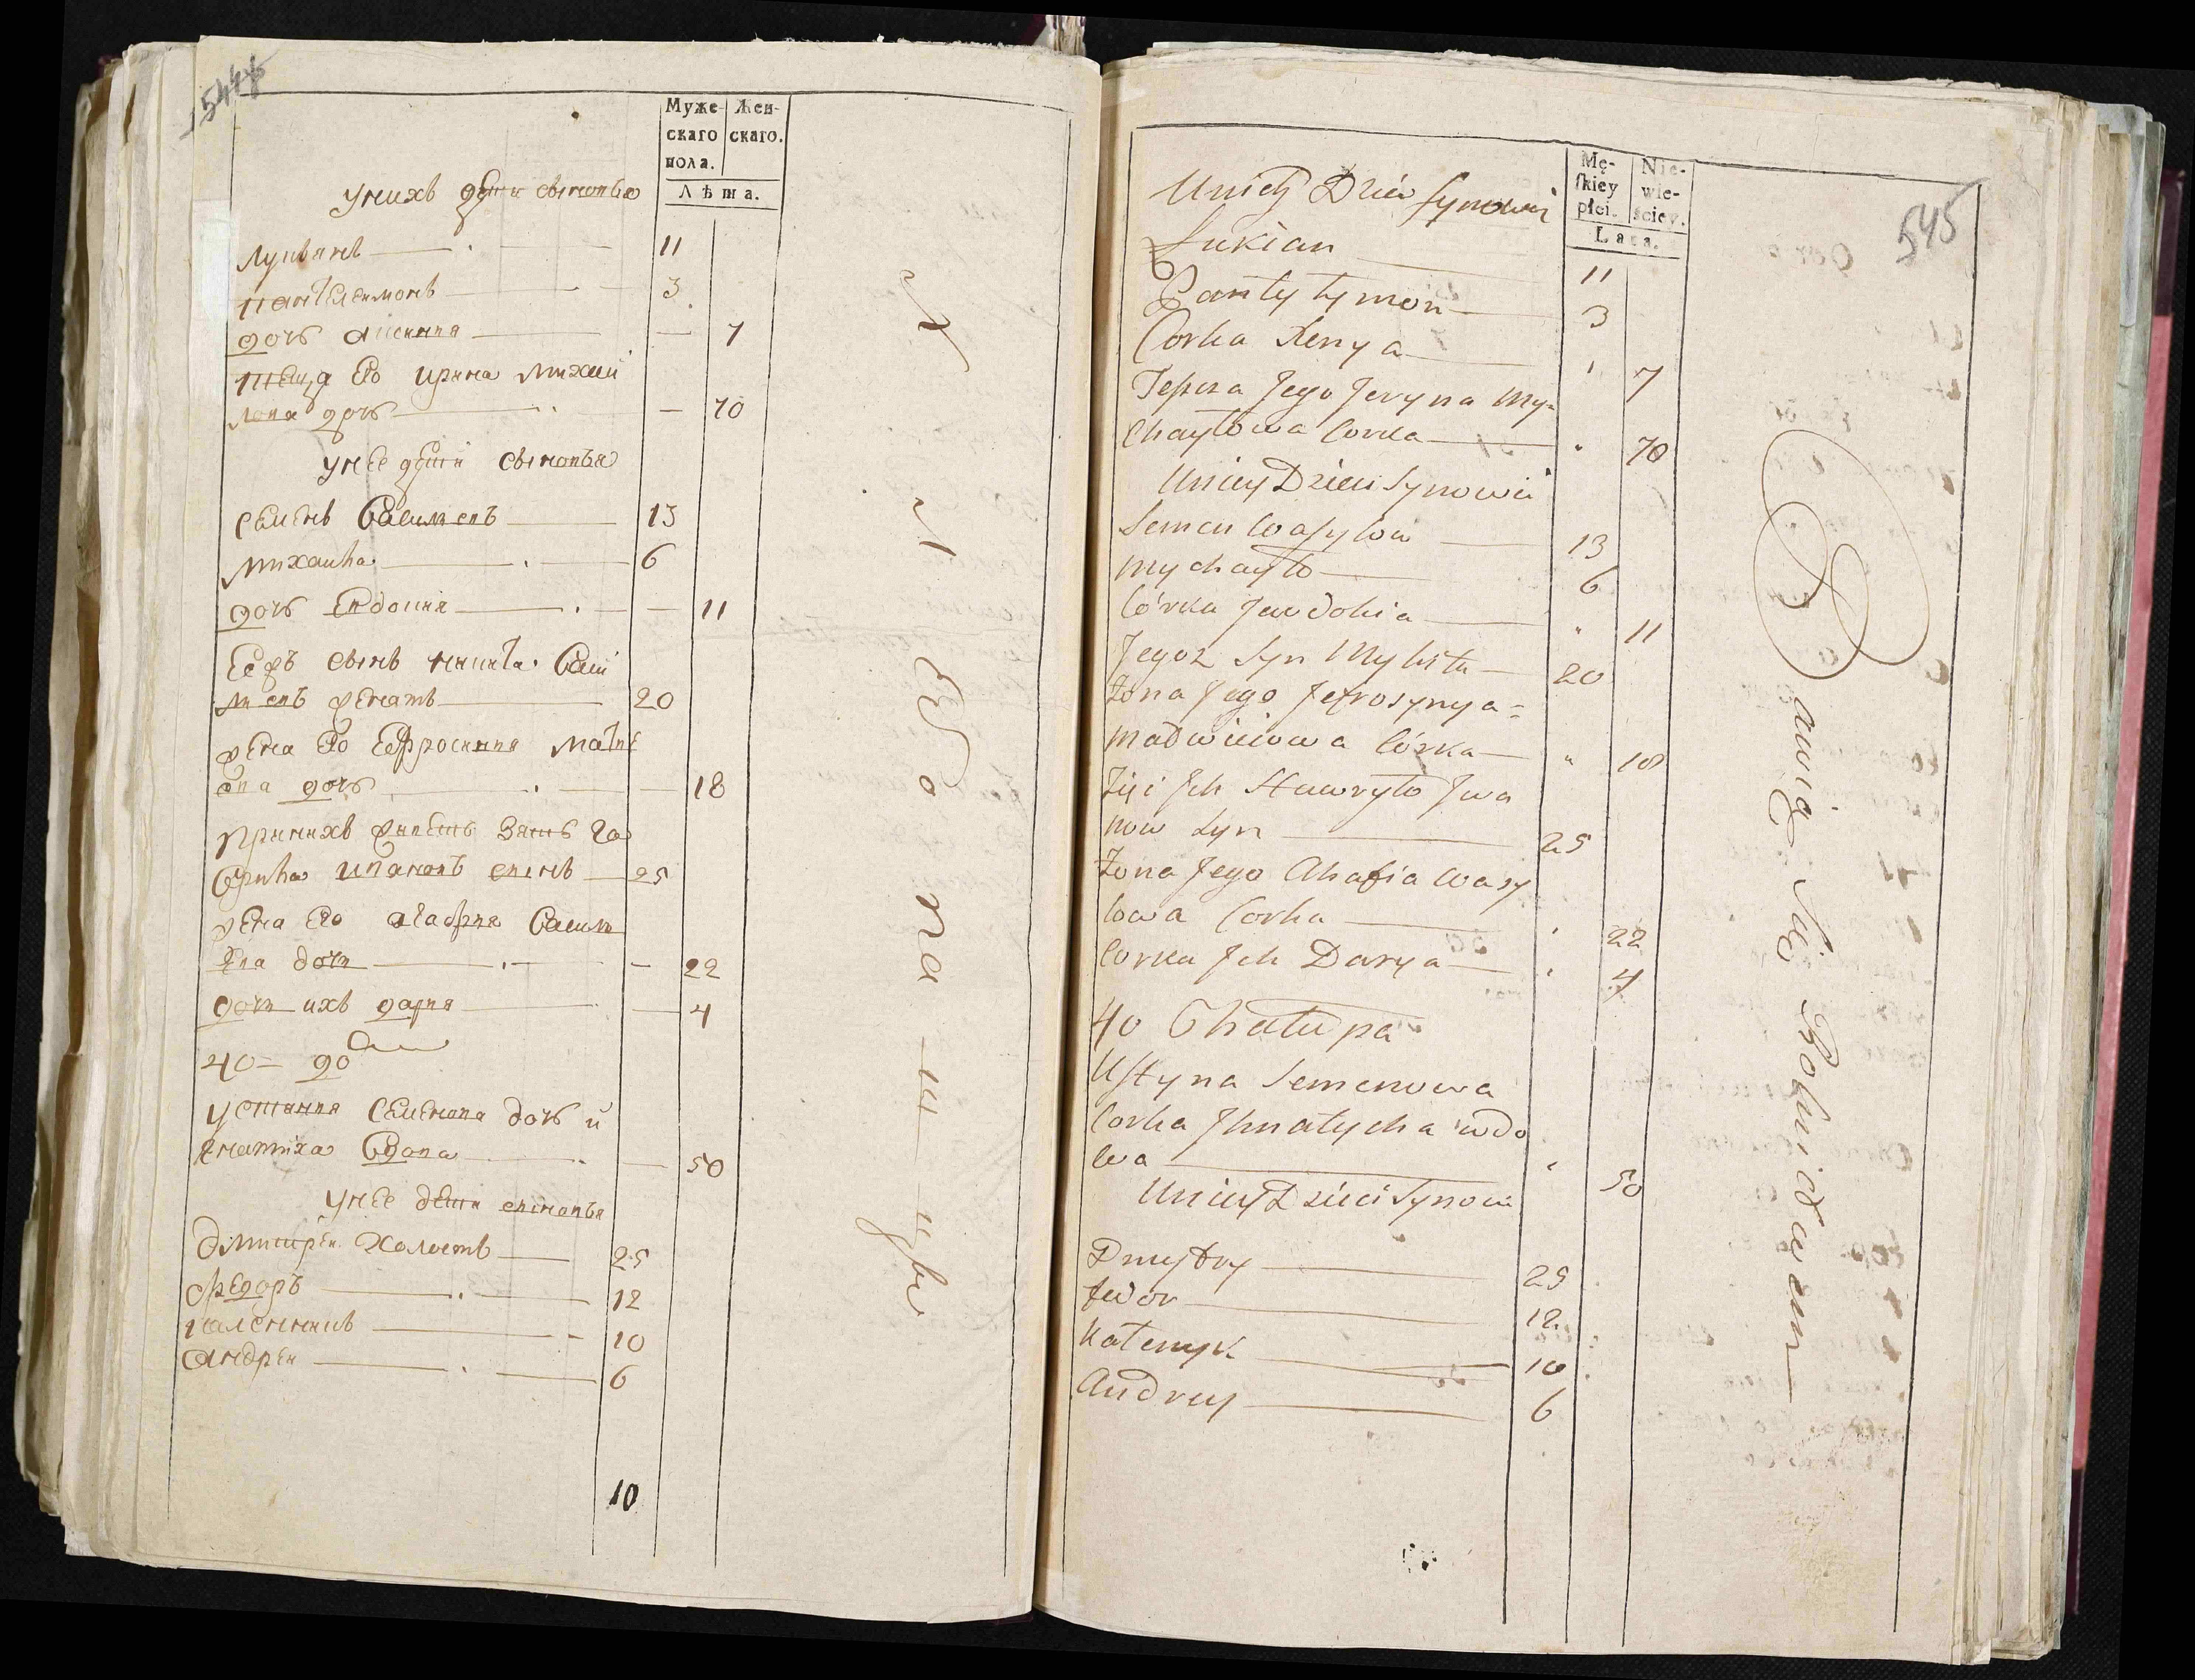 544
Муже-
скаго
пола.
Жен-
скаго.
Лѣта.
у нихъ дѣти сыновья
Лукьянъ 11
Пантелимонъ 3
дочь ксения — 7
теща его ирина михай
лова дочь — 70
у нее дѣти сыновья
семенъ василевъ 13
михаила 6
дочь Евдокия — 11
Еѣ же сынъ никита васи
левъ женатъ 20
жена его Ефросиния матве
ева дочь — 18
при нихъ живетъ зять га
врила ивановъ сынъ 25
жена его агафия васил
ева дочь — 22
дочь ихъ дария — 4
40 — до
устиния семенова дочь и
гнатиха вдова — 50
у нее дѣти сыновья
димитрей холостъ 25
федоръ 12
калеников 10
андрей 6
10
545
Mę-
skiey
płci.
Nie-
wie-
ściey.
Lata.
Unich Dzieci Synowi
Łukian 11
Pantyłymon 3
Corka Xenya 7
Teszcza Jego Jeryna My-
chayłowa Corka 70
Uniey Dzieci Synowi
Semen Wasylow 13
Mychayło 6
Córka Jawdokia 11
Jegoz Syn Mykita 20
Żona Jego Jefrosynya
Madwieiowa Córka 18
Zięć Ich Hawryło Iwa
now Syn 25
Żona Jego Ahafia Wasy
lowa Corka 22
Corka Ich Darya 4
40 Chałupa
Ustyna Semenowa
Corka Ihnatycha wdo
wa 50
Uniey Dzieci Synowi
Dmytry 25
Fedor 12
Katenyk 10
Andrey 6